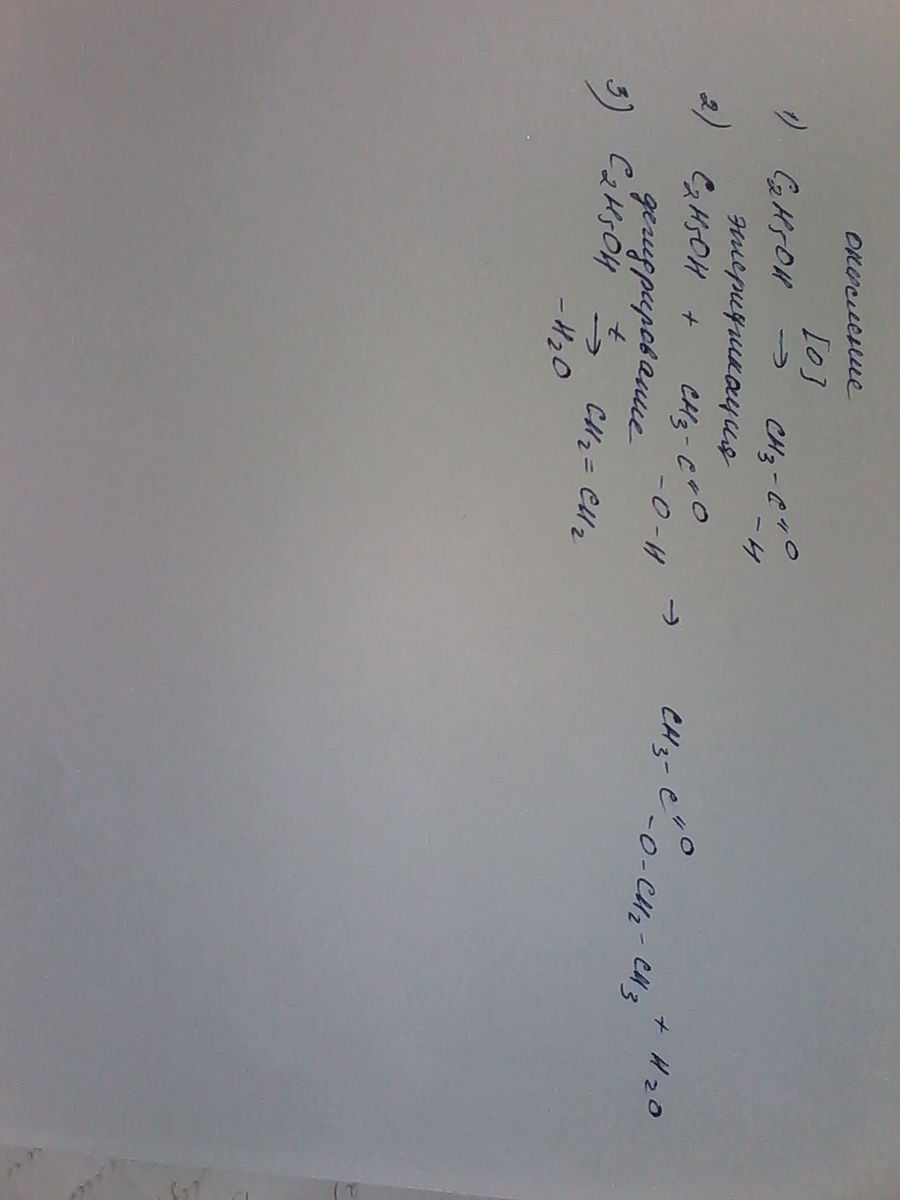 окисление
[O]
1) C₂H₅OH → CH₃-C=O
-H
этерификация
2) C₂H₅OH + CH₃-C=O
-O-H → CH₃-C=O
-O-CH₂-CH₃ + H₂O
дегидрирование
3) C₂H₅OH t→ CH₂=CH₂
-H₂O